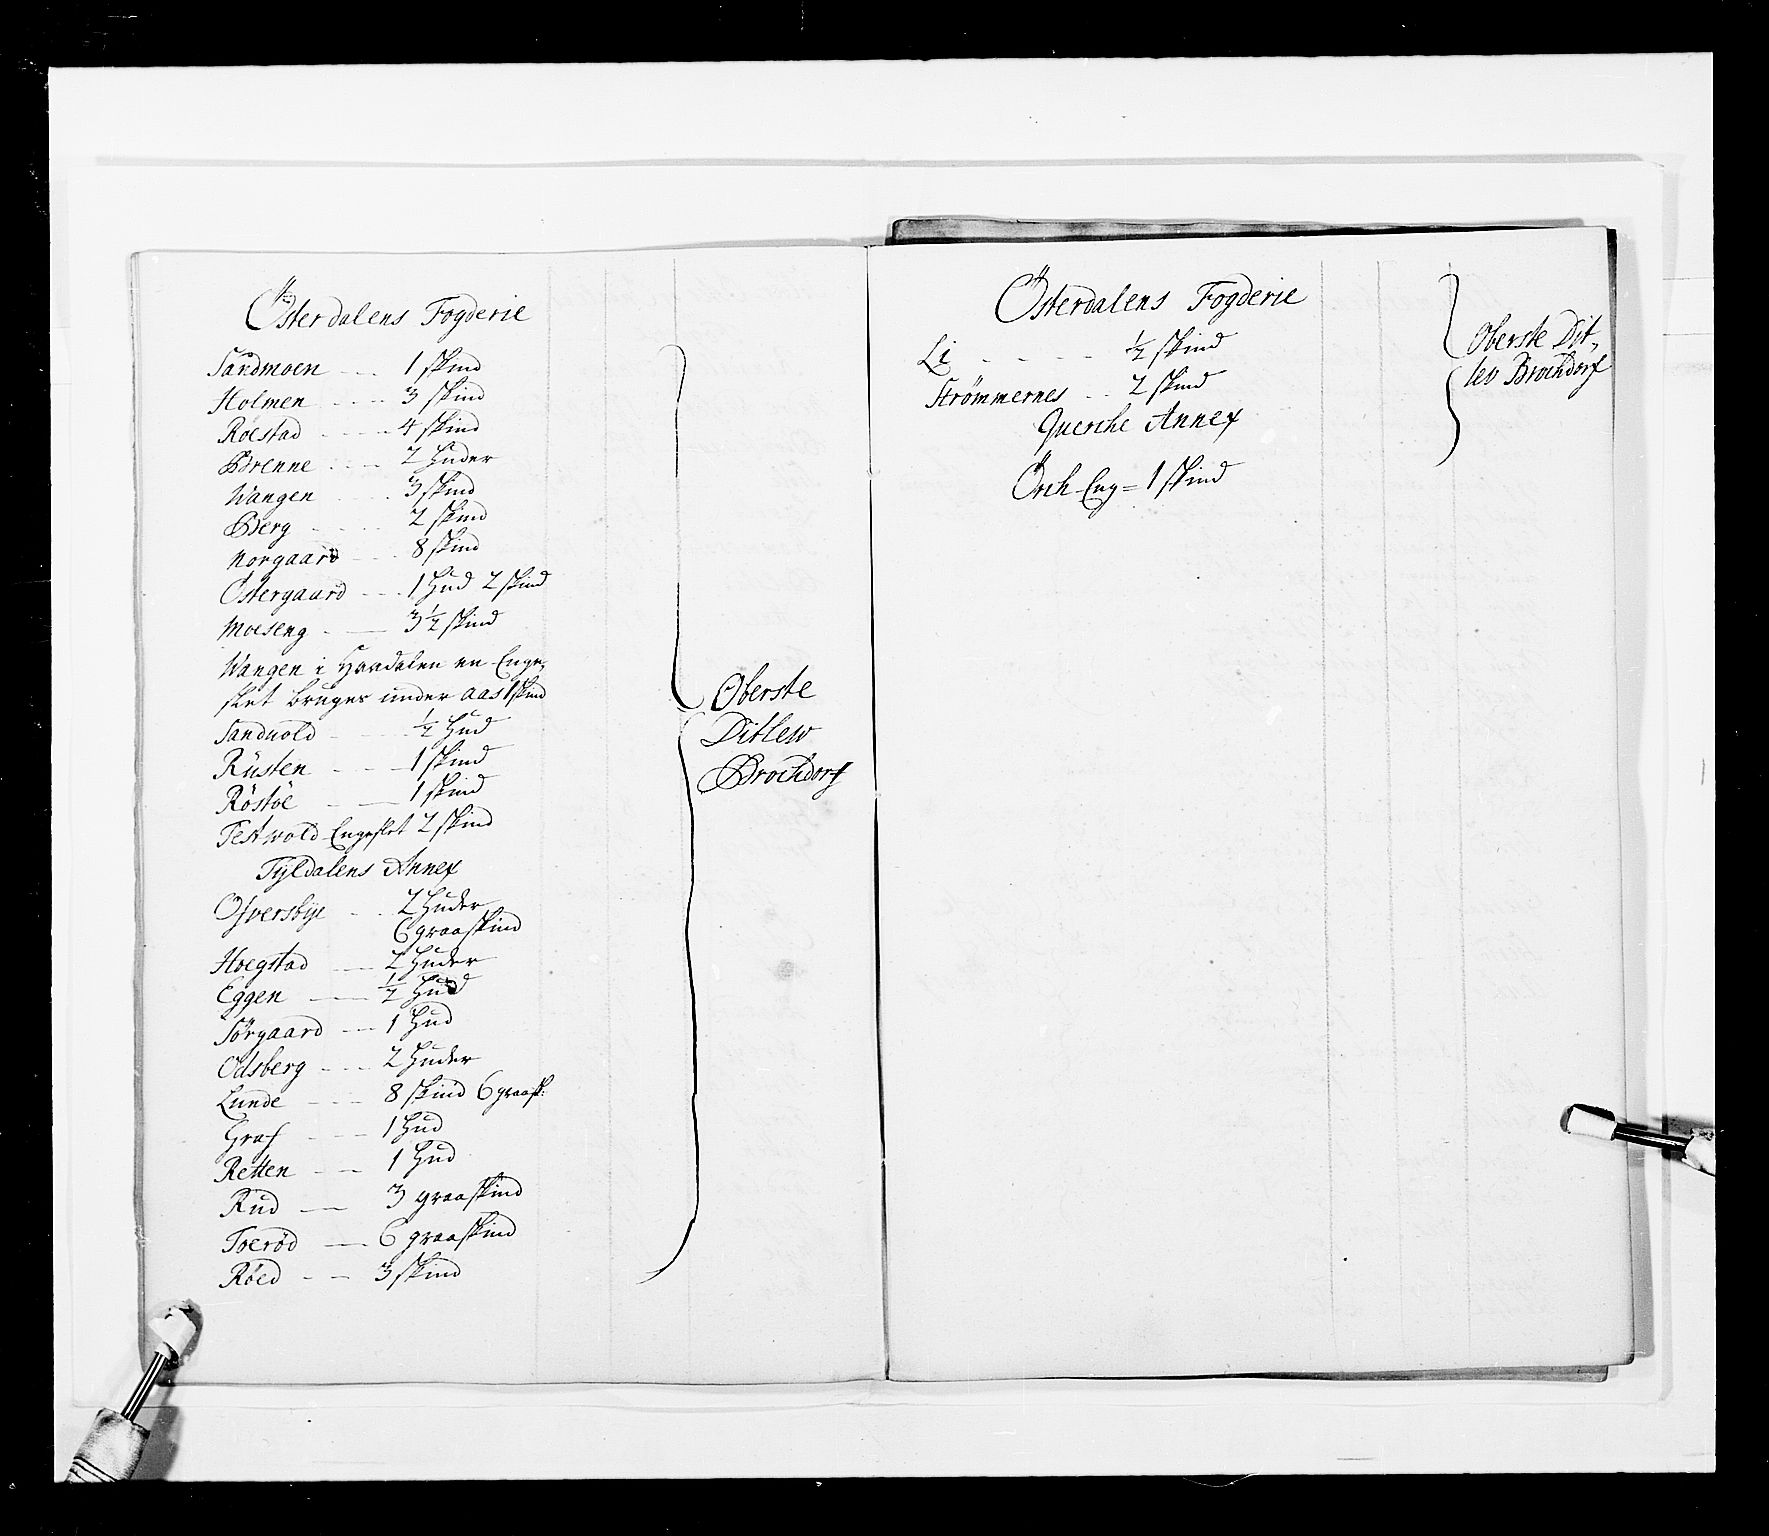 Österdalens Fogderie
Sandmoen - - - 1 skind
Holmen - - - - 3 skind
Röestad - - - - 4 skind
Brenne - - - - 2 Huder
Wangen - - - - 3 skind
Berg - - - - 2 skind
Norgaard - - - 8 skind
Östergaard - - - 1 Hud 2 skind
Moeseng - — 3½ skind
Wangen i Haadalen en Enge,
slet bruges under Aas 1 skind
Sanduold - - - - ½ Hud
Rüsten - - - — 1 skind
Röstöe - — 1 skind
Testwold Engeslet 2 skind
Tÿldalens Annex
Ofversbÿe - - - 2 Huder
6 graaskind
Hoegstad - — 2 Huder
Eggen — ½ Hud
Sørgaard - - - 1 Hud
Odsberg - - - 2 Huder
Lunde - - - - 8 skind 6 graask:
Graf - - - - 1 Hud
Retten - - — 1 Hud
Rud - — 3 graaskind
Toeröd — 6 graaskind
Röed - - — 3 skind
Oberste
Ditlew
Brochdorf
Österdalens Fogderie
Li - - - - - ½ skind
Strömmernes - - 2 skind
Querche Annex
Örch-Eng = 1 skind
Oberste Dit,
lev Brochdorf